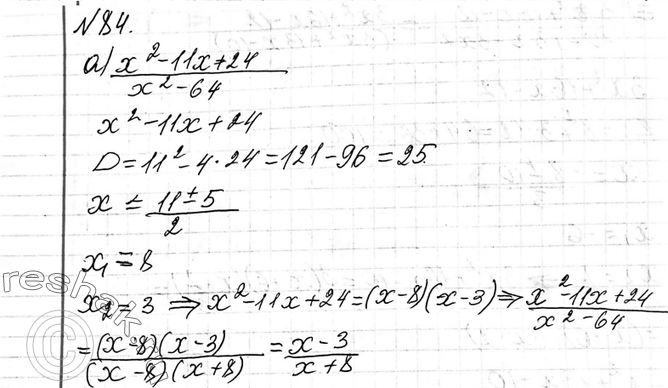 №84.
а) (x²-11x+24)/(x²-64)
x²-11x+24
D=11²-4·24=121-96=25
x = (11±5)/2
x₁=8
x₂=3 ⇒ x²-11x+24=(x-8)(x-3) ⇒ (x²-11x+24)/(x²-64)
=((x-8)(x-3))/((x-8)(x+8)) = (x-3)/(x+8)
reshak
©